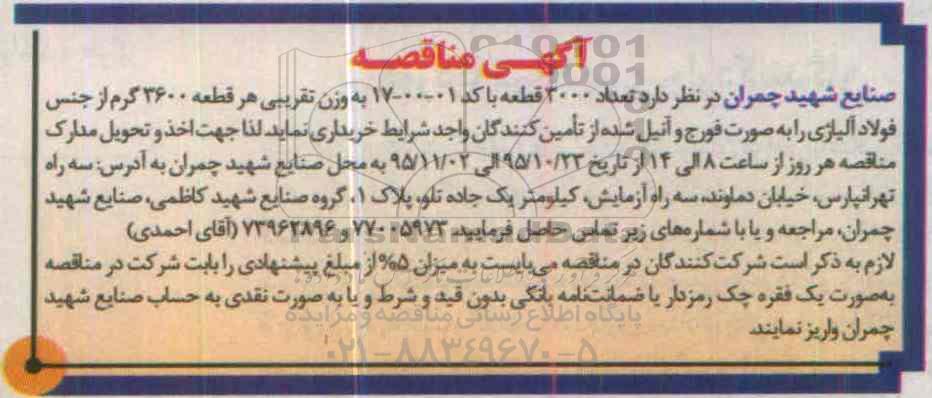 آگهی مناقصه
صنایع شهید چمران در نظر دارد تعداد ۳۰۰۰ قطعه با کد ۰۱-۰۰-۱۷ به وزن تقریبی هر قطعه ۳۶۰۰ گرم از جنس
فولاد آلیاژی را به صورت فورج و آنیل شده از تأمین کنندگان واجد شرایط خریداری نماید لذا جهت اخذ و تحویل مدارک
مناقصه هر روز از ساعت ۸ الی ۱۴ از تاریخ ۹۵/۱۰/۲۳ الی ۹۵/۱۱/۰۲ به محل صنایع شهید چمران به آدرس: سه راه
تهرانپارس، خیابان دماوند، سه راه آزمایش، کیلومتر یک جاده تلو، پلاک ۱، گروه صنایع شهید کاظمی، صنایع شهید
چمران، مراجعه و یا با شماره‌های زیر تماس حاصل فرمایید. ۷۷۰۰۵۹۷۳ و ۷۳۹۶۲۸۹۶ (آقای احمدی)
لازم به ذکر است شرکت کنندگان در مناقصه می‌بایست به میزان ۵% از مبلغ پیشنهادی را بابت شرکت در مناقصه
به‌صورت یک فقره چک رمزدار یا ضمانت‌نامه بانکی بدون قید و شرط و یا به صورت نقدی به حساب صنایع شهید
پایگاه اطلاع رسانی مناقصه و مزایده
چمران واریز نمایند.
۰۲۱-۸۸۳۴۹۶۷۰-۵